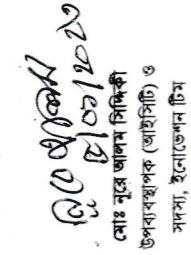 ৪/০১/২০২৩
মোঃ নুরে আলম সিদ্দিকী
উপব্যবস্থাপক (আইসিটি) ও
সদস্য, ইনোভেশন টিম